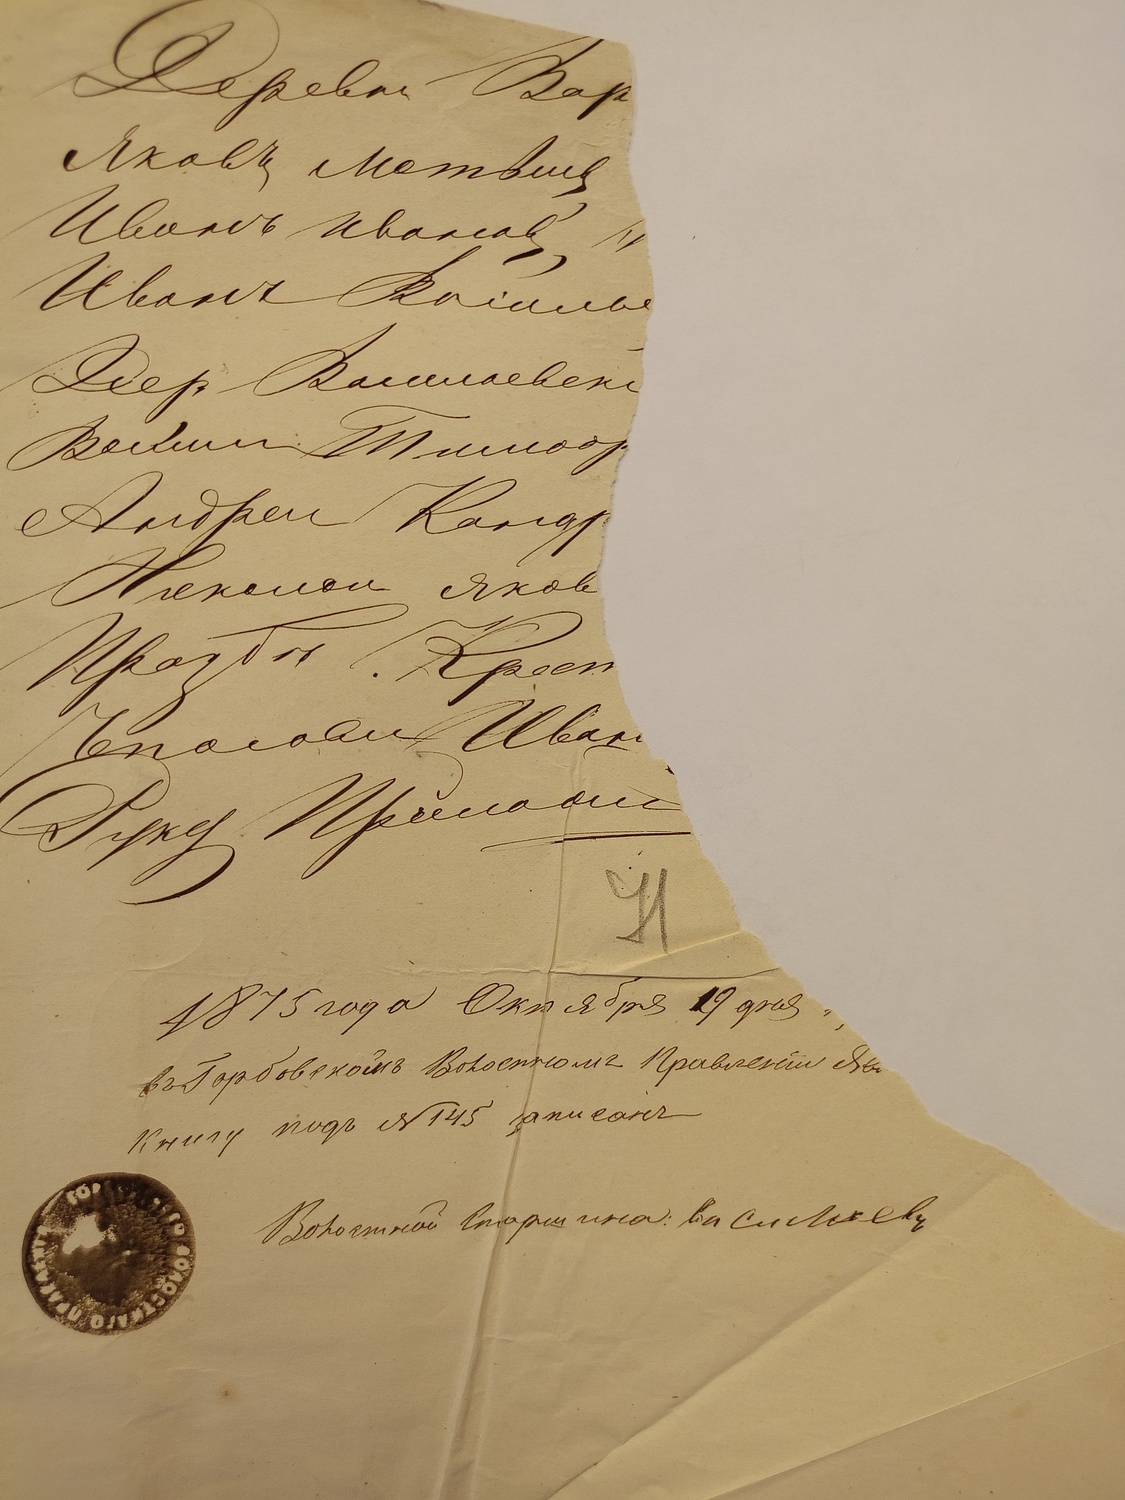 Деревни Вар
Яковъ Матвѣивъ
Иванъ Ивановъ И
Иванъ Василье
Дер Василевск
Тимофр
Андреи Кандр
Николаи Яков
Прозбы Крест
Иван
Руку Приложилъ
И
1875 года Октября 19 дня
въ Горбовскомъ Волостномъ Правленіи
Книгу подъ №145 записанъ
Волостной Старшина: Василь евъ
ГОР ГО ВОЛОСТНАГО ПРАВЛЕНІ